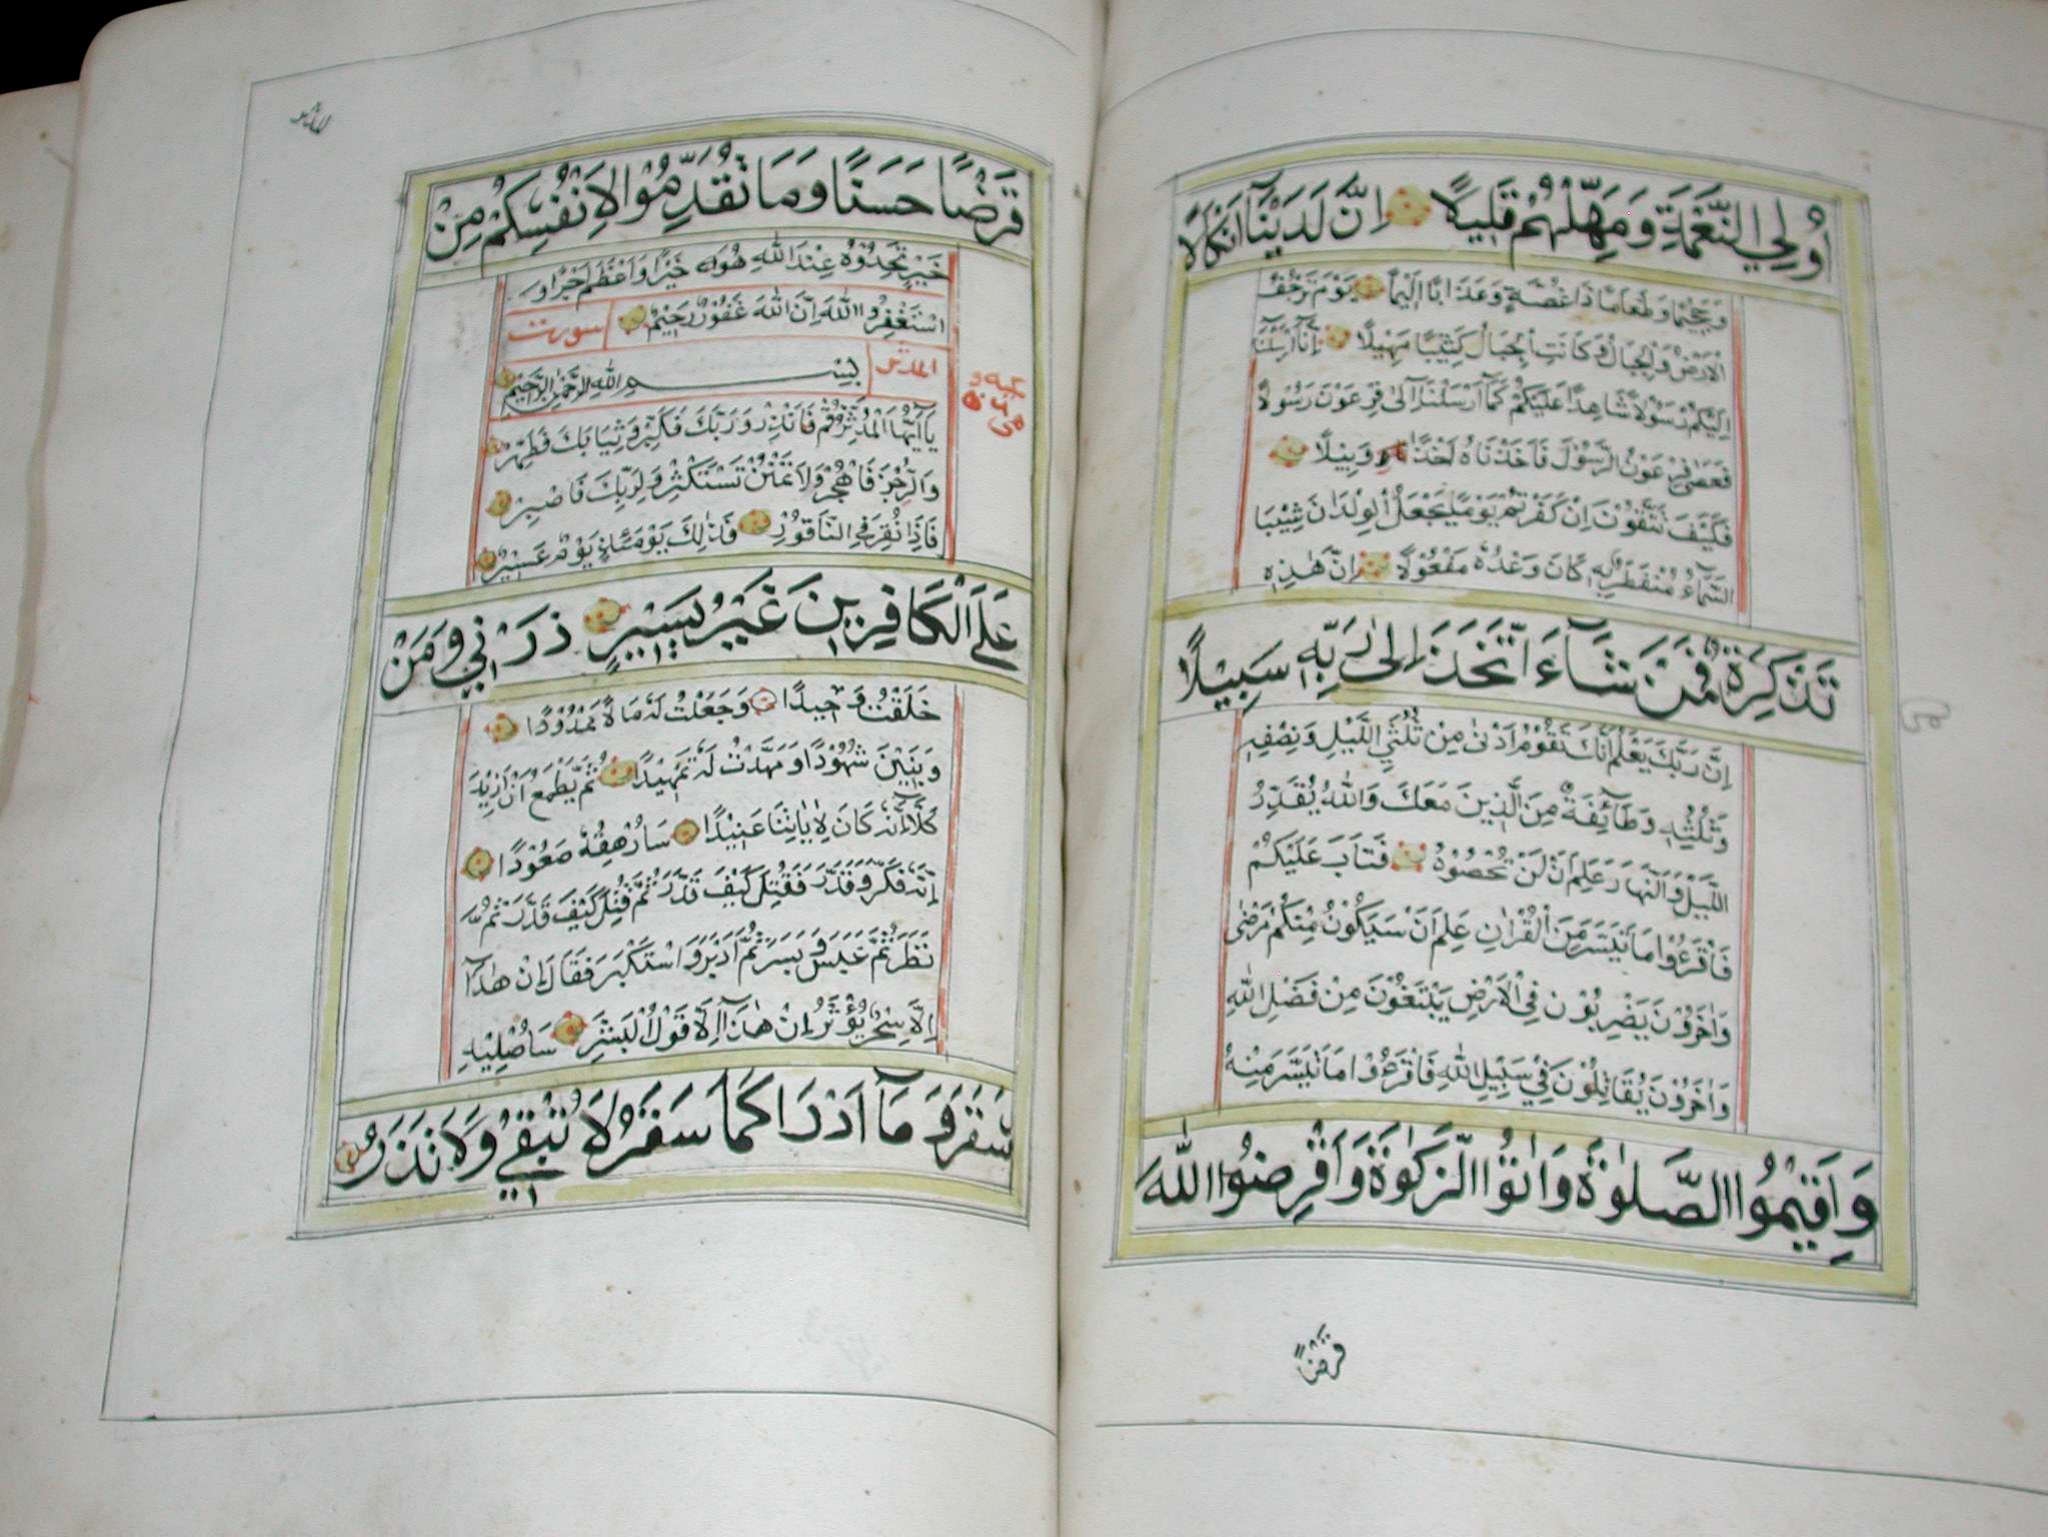 أُولِي النَّعْمَةِ وَمَهِّلْهُمْ قَلِيلًا إِنَّ لَدَيْنَآ أَنْكَالًا
وَجَحِيمًا وَطَعَامًا ذَا غُصَّةٍ وَعَذَابًا أَلِيمًا يَوْمَ تَرْجُفُ
الْأَرْضُ وَالْجِبَالُ وَكَانَتِ الْجِبَالُ كَثِيبًا مَهِيلًا إِنَّآ أَرْسَلْنَآ
إِلَيْكُمْ رَسُولًا شَاهِدًا عَلَيْكُمْ كَمَآ أَرْسَلْنَآ إِلَىٰ فِرْعَوْنَ رَسُولًا
فَعَصَىٰ فِرْعَوْنُ الرَّسُولَ فَأَخَذْنَاهُ أَخْذًا وَبِيلًا
فَكَيْفَ تَتَّقُونَ إِنْ كَفَرْتُمْ يَوْمًا يَجْعَلُ الْوِلْدَانَ شِيبًا
السَّمَآءُ مُنْفَطِرٌ بِهِ كَانَ وَعْدُهُ مَفْعُولًا إِنَّ هَٰذِهِ
تَذْكِرَةٌ فَمَنْ شَآءَ اتَّخَذَ إِلَىٰ رَبِّهِ سَبِيلًا
إِنَّ رَبَّكَ يَعْلَمُ أَنَّكَ تَقُومُ أَدْنَىٰ مِنْ ثُلُثَيِ اللَّيْلِ وَنِصْفِهِ
وَثُلُثِهِ وَطَآئِفَةٌ مِنَ الَّذِينَ مَعَكَ وَاللّٰهُ يُقَدِّرُ
اللَّيْلَ وَالنَّهَارَ عَلِمَ أَنْ لَنْ تُحْصُوهُ فَتَابَ عَلَيْكُمْ
فَاقْرَءُوا مَا تَيَسَّرَ مِنَ الْقُرْاٰنِ عِلِمَ أَنْ سَيَكُونُ مِنْكُمْ مَرْضَىٰ
وَاٰخَرُونَ يَضْرِبُونَ فِي الْأَرْضِ يَبْتَغُونَ مِنْ فَضْلِ اللّٰهِ
وَاٰخَرُونَ يُقَاتِلُونَ فِي سَبِيلِ اللّٰهِ فَاقْرَءُوا مَا تَيَسَّرَ مِنْهُ
وَأَقِيمُوا الصَّلٰوةَ وَاٰتُوا الزَّكٰوةَ وَأَقْرِضُوا اللّٰهَ
قَرْضًا
المدثر
قَرْضًا حَسَنًا وَمَا تُقَدِّمُوا لِأَنْفُسِكُمْ مِنْ
خَيْرٍ تَجِدُوهُ عِنْدَ اللّٰهِ هُوَ خَيْرًا وَأَعْظَمَ أَجْرًا وَ
اسْتَغْفِرُوا اللّٰهَ إِنَّ اللّٰهَ غَفُورٌ رَحِيمٌ سورت
المدثر بِسْمِ اللّٰهِ الرَّحْمٰنِ الرَّحِيمِ
يَآ أَيُّهَا الْمُدَّثِّرُ قُمْ فَأَنْذِرْ وَرَبَّكَ فَكَبِّرْ وَثِيَابَكَ فَطَهِّرْ
وَالرُّجْزَ فَاهْجُرْ وَلَا تَمْنُنْ تَسْتَكْثِرُ وَلِرَبِّكَ فَاصْبِرْ
فَإِذَا نُقِرَ فِي النَّاقُورِ فَذٰلِكَ يَوْمَئِذٍ يَوْمٌ عَسِيرٌ
عَلَى الْكَافِرِينَ غَيْرُ يَسِيرٍ ذَرْنِي وَمَنْ
خَلَقْتُ وَحِيدًا وَجَعَلْتُ لَهُ مَالًا مَمْدُودًا
وَبَنِينَ شُهُودًا وَمَهَّدْتُ لَهُ تَمْهِيدًا ثُمَّ يَطْمَعُ أَنْ أَزِيدَ
كَلَّآ إِنَّهُ كَانَ لِاٰيَاتِنَا عَنِيدًا سَأُرْهِقُهُ صَعُودًا
إِنَّهُ فَكَّرَ وَقَدَّرَ فَقُتِلَ كَيْفَ قَدَّرَ ثُمَّ قُتِلَ كَيْفَ قَدَّرَ ثُمَّ
نَظَرَ ثُمَّ عَبَسَ وَبَسَرَ ثُمَّ أَدْبَرَ وَاسْتَكْبَرَ فَقَالَ إِنْ هٰذَآ
إِلَّا سِحْرٌ يُؤْثَرُ إِنْ هٰذَآ إِلَّا قَوْلُ الْبَشَرِ سَأُصْلِيهِ
سَقَرَ وَمَآ أَدْرَاكَ مَا سَقَرُ لَا تُبْقِي وَلَا تَذَرُ